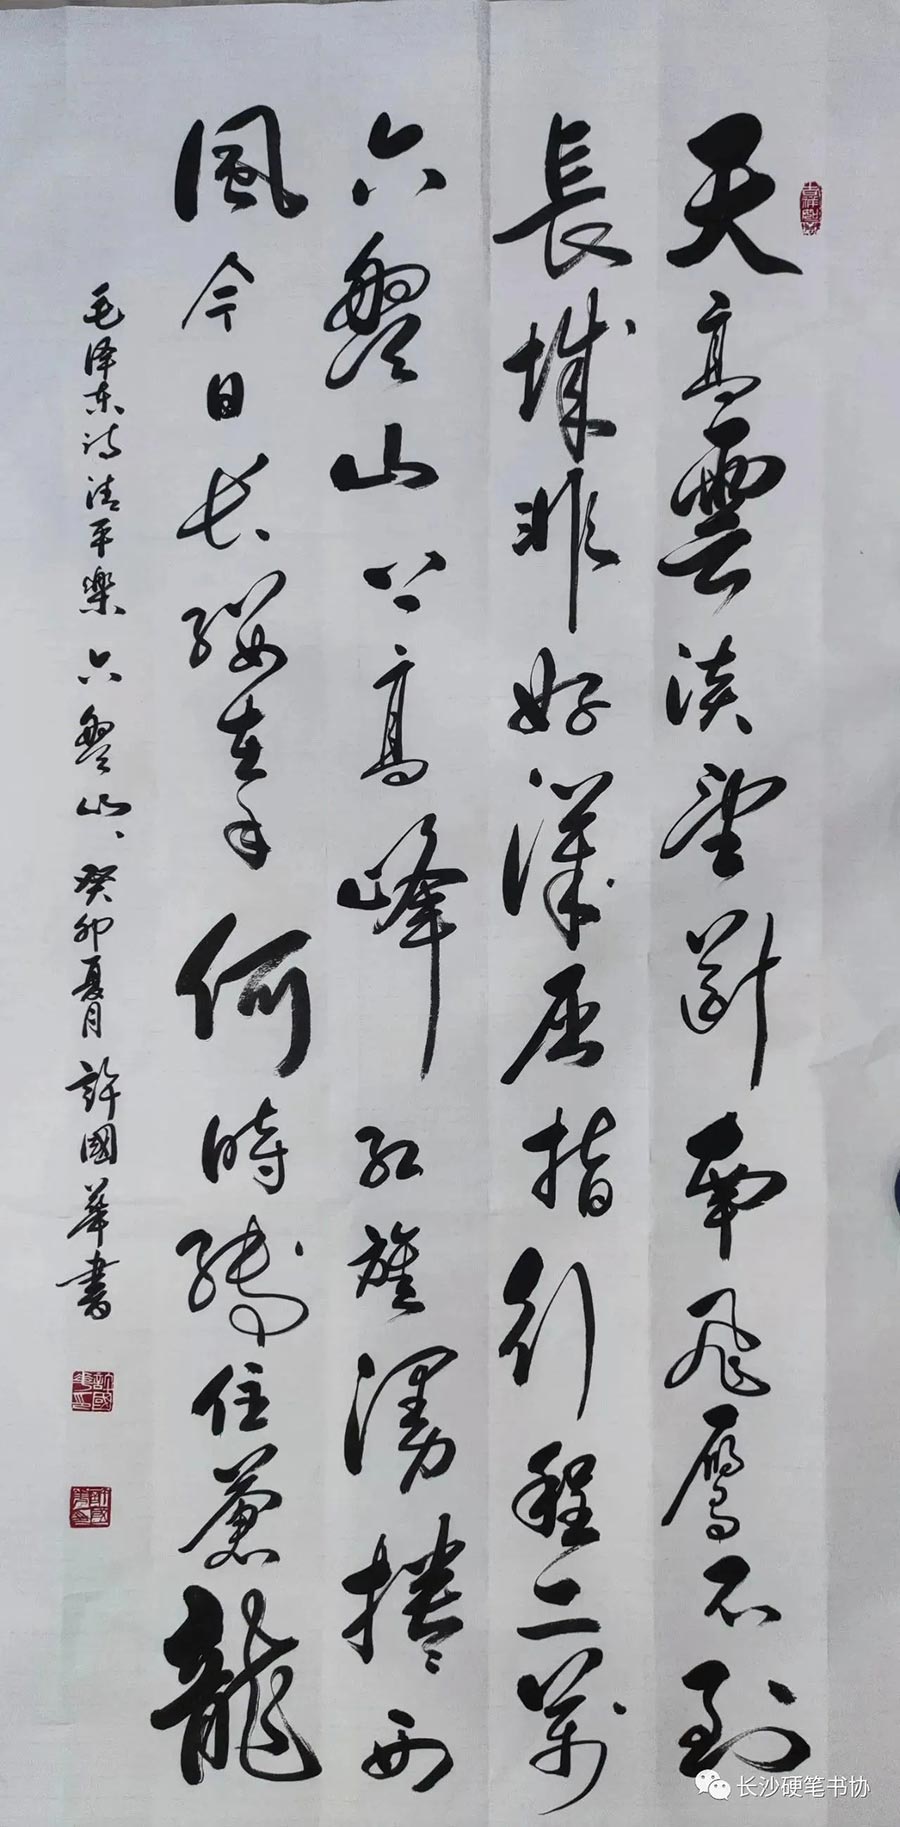 天高雲淡望斷南飛雁不到
長城非好漢屈指行程二萬
六盤山上高峰紅旗漫捲西
風今日長纓在手何時縛住蒼龍
毛泽东诗清平樂六盤山、癸卯夏月許國華書
長沙硬笔书协